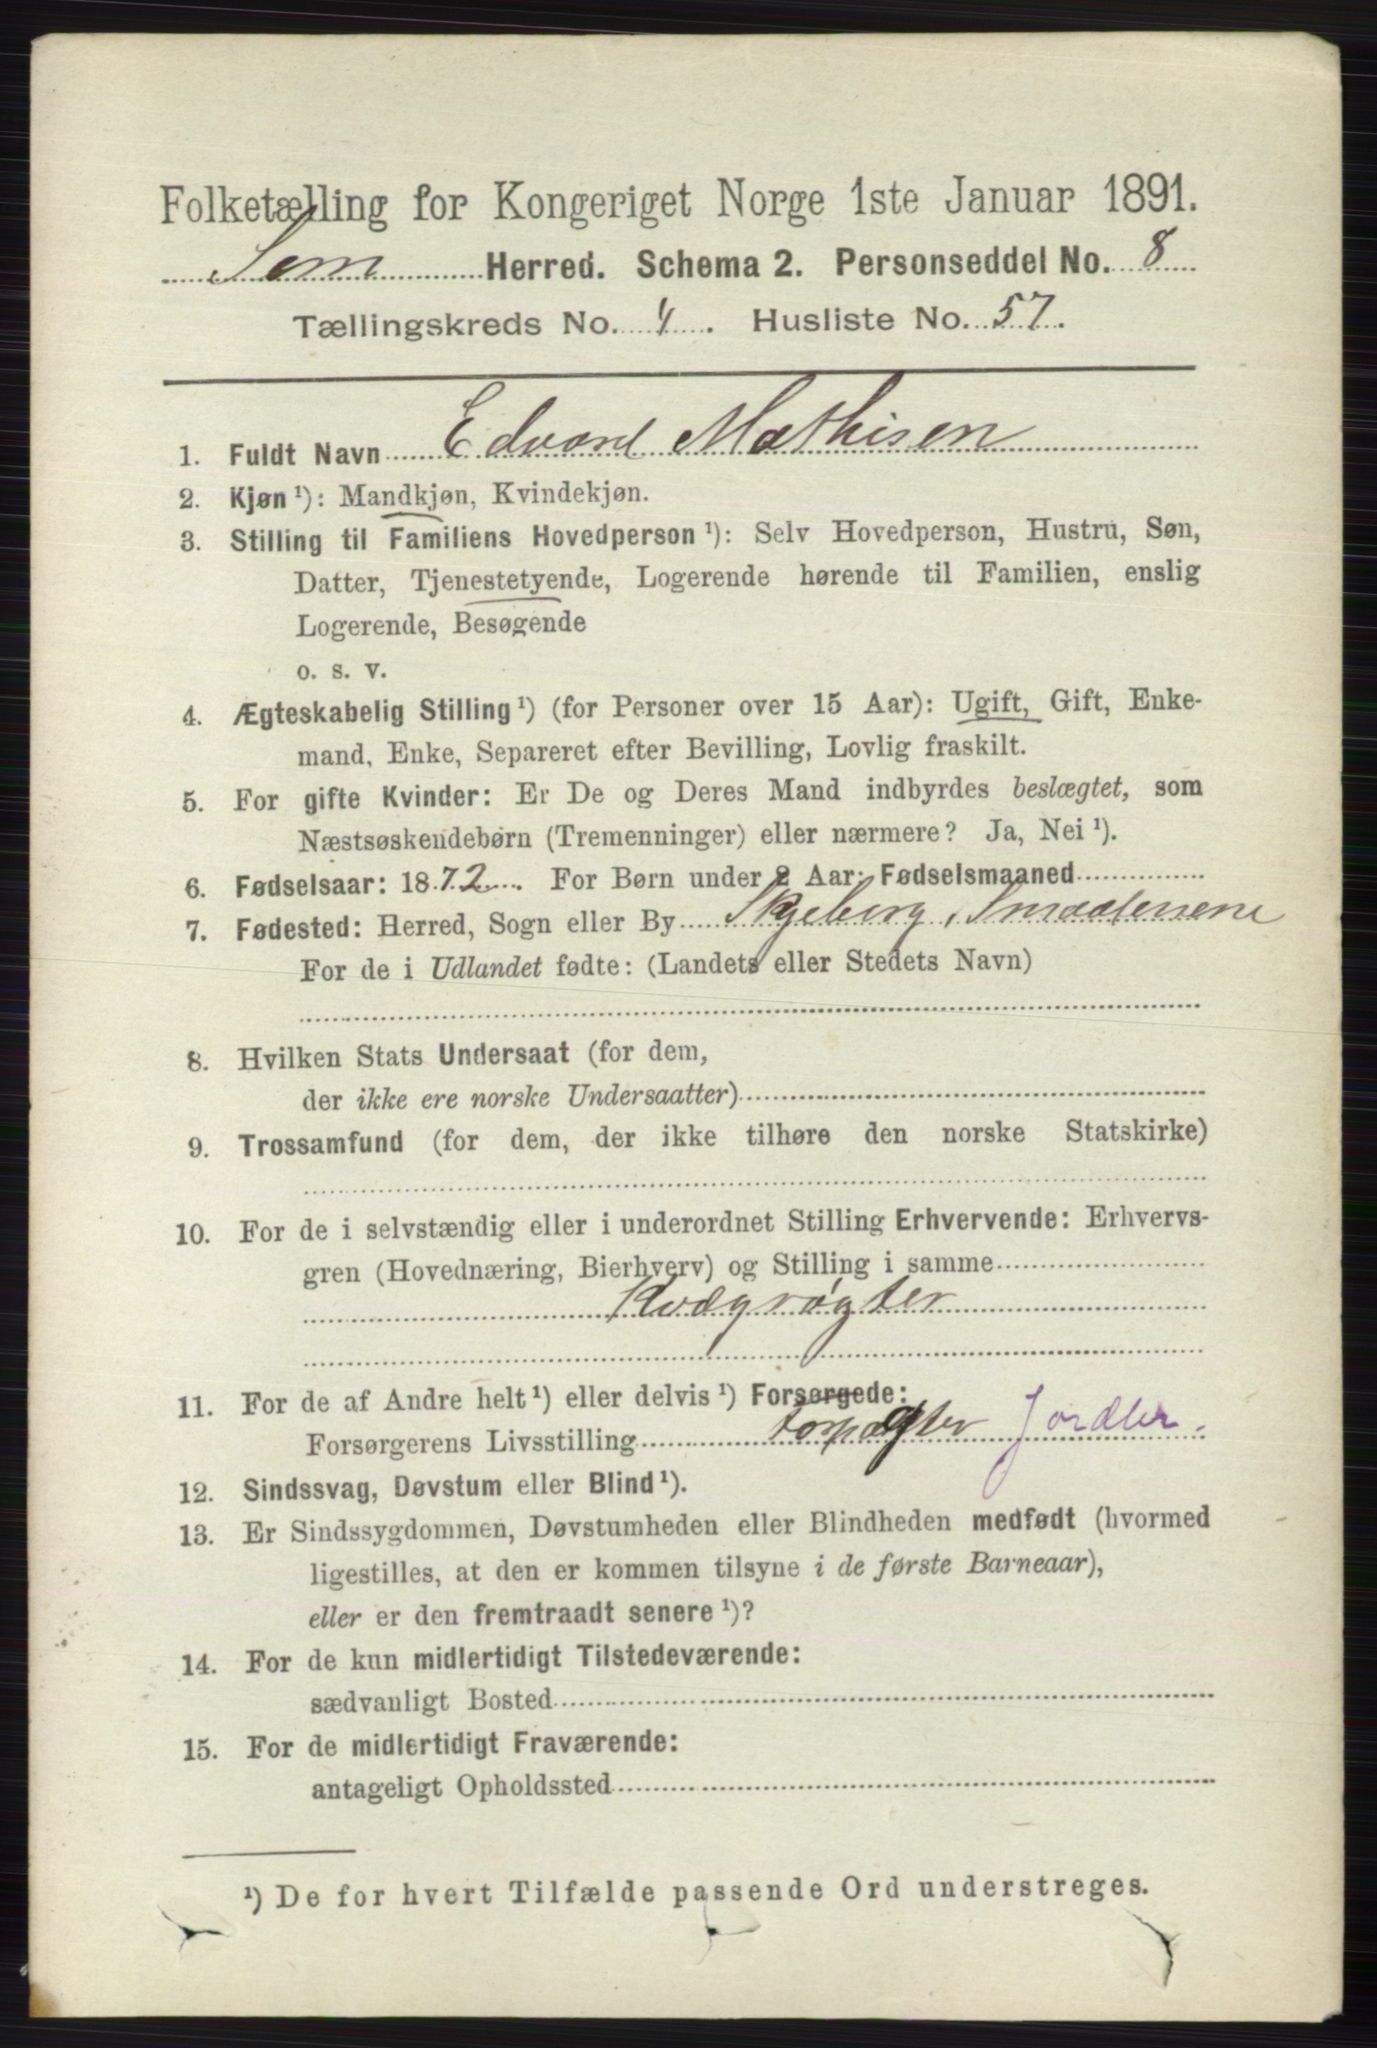 Folketælling for Kongeriget Norge 1ste Januar 1891.
Sem Herred. Schema 2. Personseddel No. 8
Tællingskreds No. 4. Husliste No. 57.
1. Fuldt Navn Edvard Mathisen
2. Kjøn ¹): Mandkjøn, Kvindekjøn.
3. Stilling til Familiens Hovedperson ¹): Selv Hovedperson, Hustru, Søn,
Datter, Tjenestetyende, Logerende hørende til Familien, enslig
Logerende, Besøgende
o. s. v.
4. Ægteskabelig Stilling ¹) (for Personer over 15 Aar): Ugift, Gift, Enke-
mand, Enke, Separeret efter Bevilling, Lovlig fraskilt.
5. For gifte Kvinder: Er De og Deres Mand indbyrdes beslægtet, som
Næstsøskendebørn (Tremenninger) eller nærmere? Ja, Nei ¹).
6. Fødselsaar: 1872. For Børn under 2 Aar: Fødselsmaaned
7. Fødested: Herred, Sogn eller By Skjeberg, Smaalenene
For de i Udlandet fødte: (Landets eller Stedets Navn)
8. Hvilken Stats Undersaat (for dem,
der ikke ere norske Undersaatter)
9. Trossamfund (for dem, der ikke tilhøre den norske Statskirke)
10. For de i selvstændig eller i underordnet Stilling Erhvervende: Erhvervs-
gren (Hovednæring, Bierhverv) og Stilling i samme
Kvægrøgter
11. For de af Andre helt ¹) eller delvis ¹) Forsørgede:
Forsørgerens Livsstilling Forpagter Jordbr.
12. Sindssvag, Døvstum eller Blind ¹).
13. Er Sindssygdommen, Døvstumheden eller Blindheden medfødt (hvormed
ligestilles, at den er kommen tilsyne i de første Barneaar),
eller er den fremtraadt senere ¹)?
14. For de kun midlertidigt Tilstedeværende:
sædvanligt Bosted
15. For de midlertidigt Fraværende:
antageligt Opholdssted
¹) De for hvert Tilfælde passende Ord understreges.